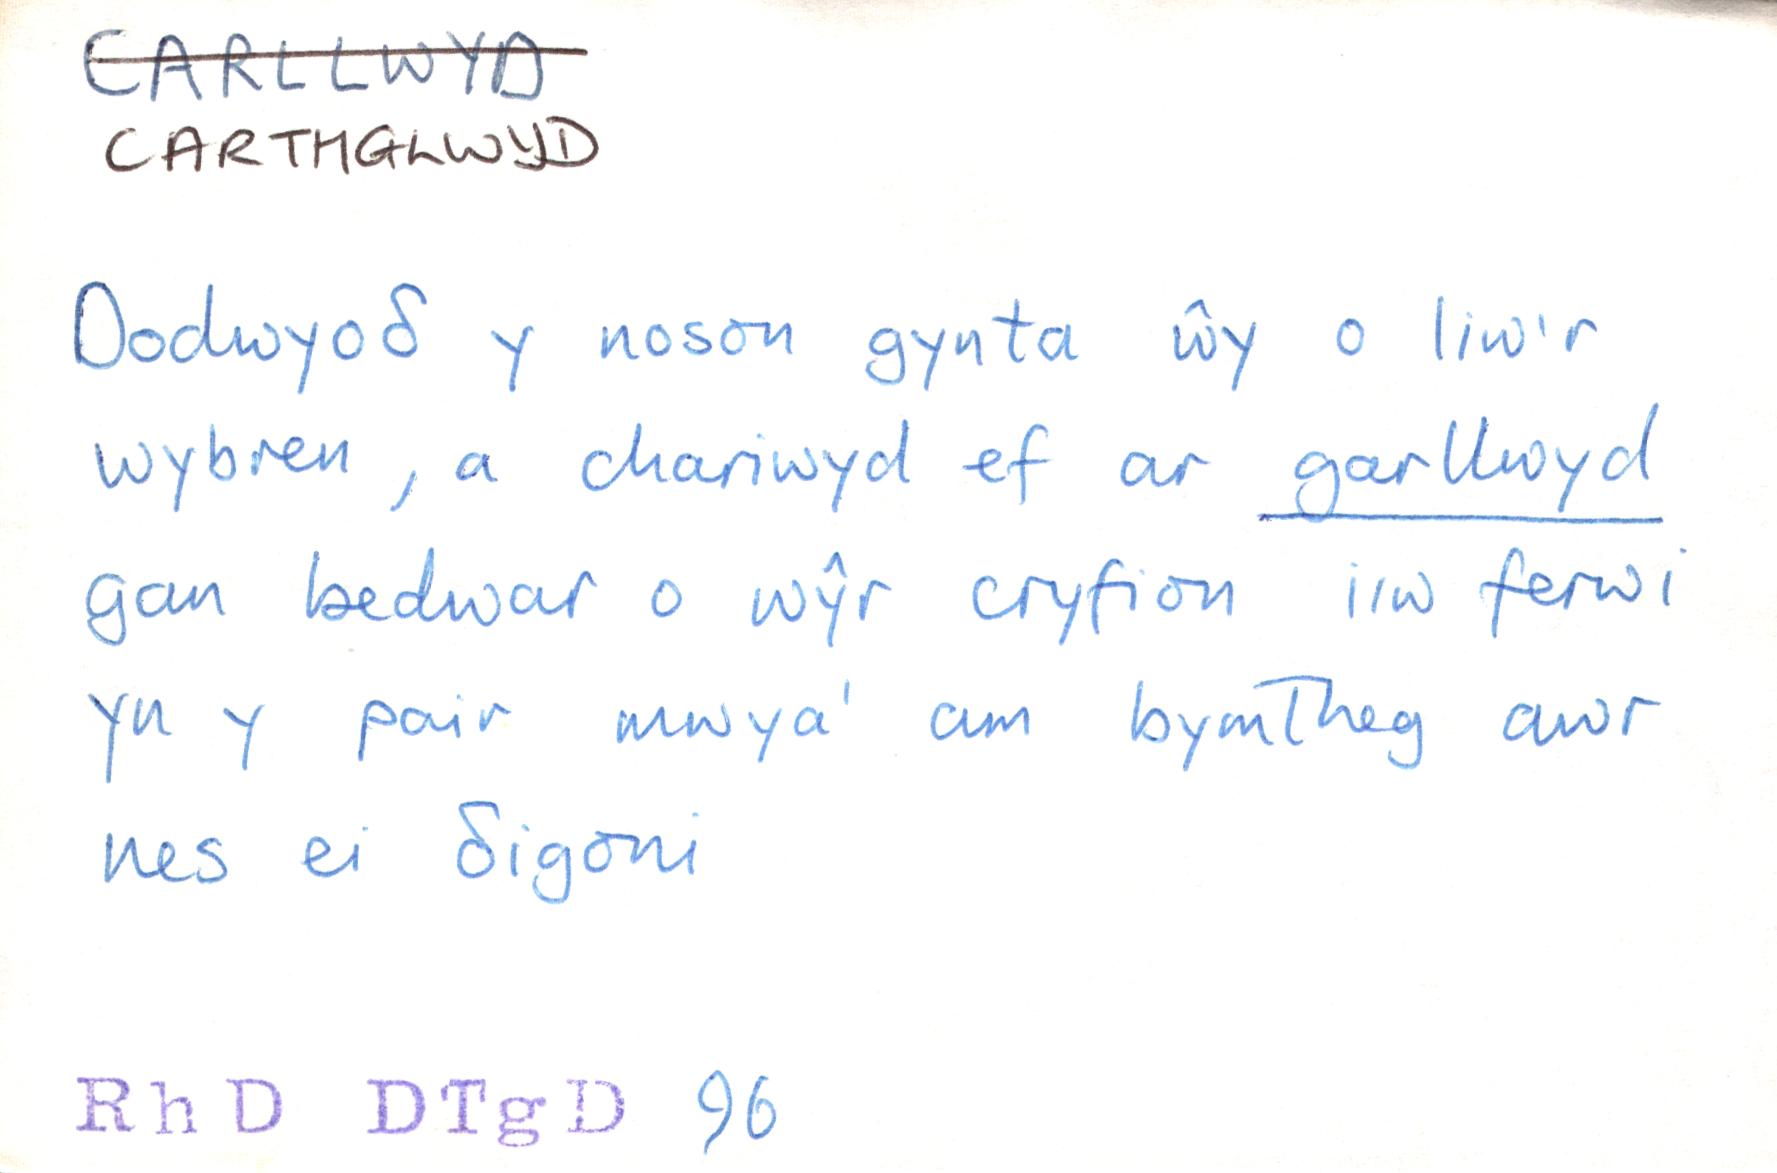 CARLLWYD
CARTHGLWYD
Dodwyoδ y noson gynta ŵy o liw'r
wybren, a chariwyd ef ar garllwyd
gan bedwar o wŷr cryfion i'iw ferwi
yn y pair mwya' am bymtheg awr
nes ei δigoni
RhD DTgD 96